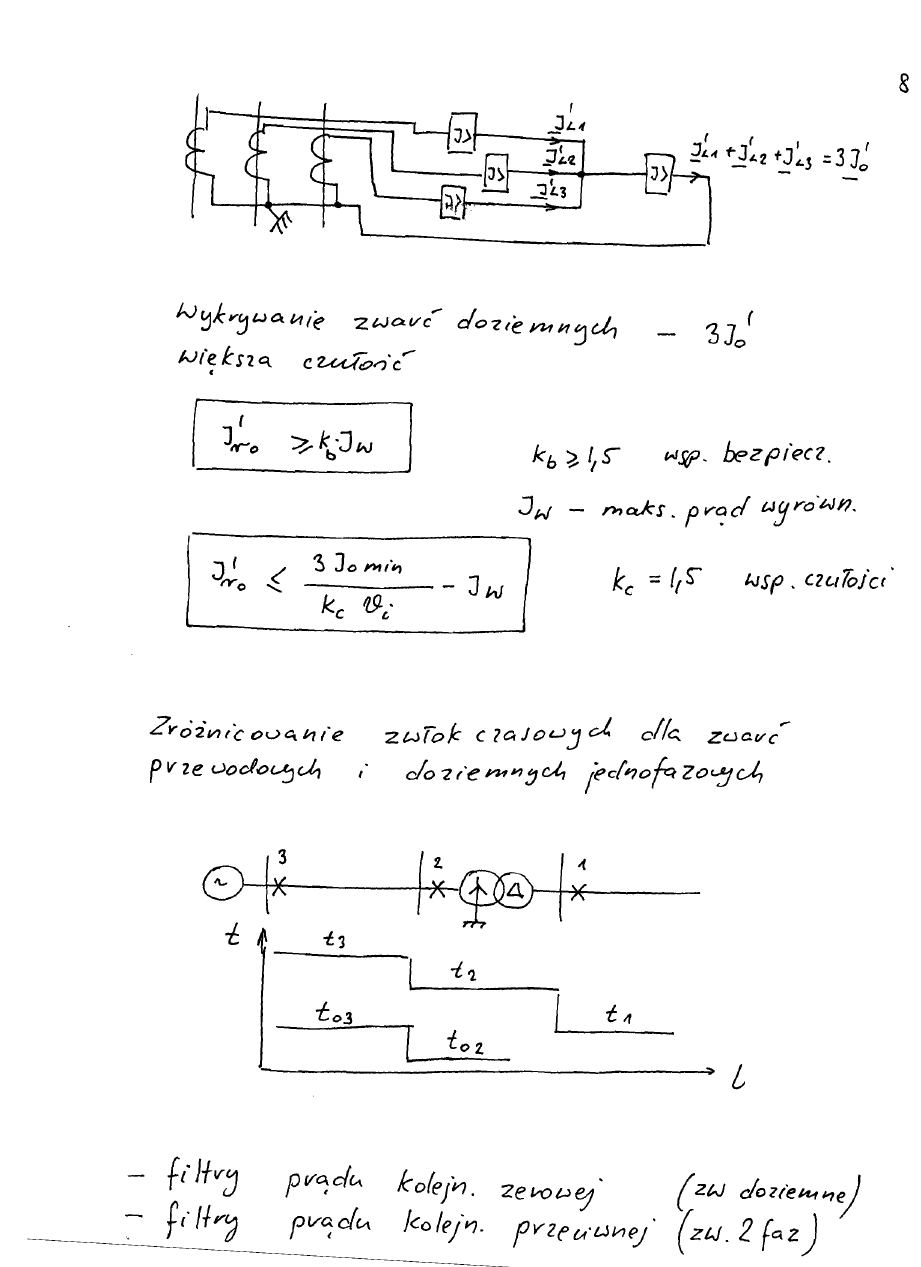 8
J'L1
J> J'L2 J> J'L1 + J'L2 + J'L3 = 3J0'
J> J'L3
J>
Wykrywanie zwarć doziemnych – 3J0'
większa czułość
J'r0 ≥ kb·Jw
kb ≥ 1,5 wsp. bezpiecz.
Jw – maks. prąd wyrówn.
J'r0 ≤ 3 J0 min / kc ϑi – Jw
kc = 1,5 wsp. czułości
Zróżnicowanie zwłok czasowych dla zwarć
przewodowych i doziemnych jednofazowych
3 2 1
~ Δ
t t3
t2
t03 t1
t02
l
– filtry prądu kolejn. zerowej (zw doziemne)
– filtry prądu kolejn. przeciwnej (zw. 2 faz)